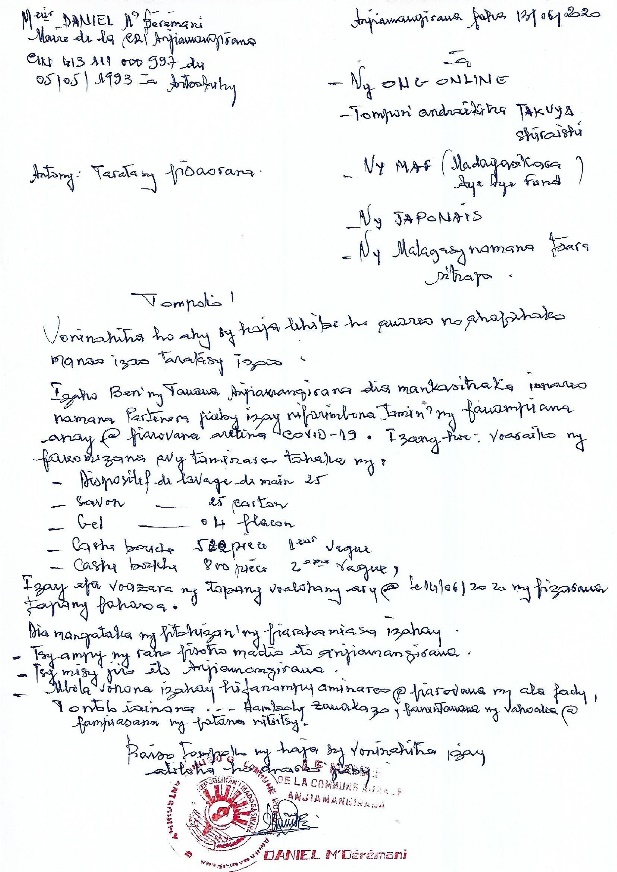 Meur DANIEL M'Dérémani
Maire de la CR/ Anjiamangirana
CIN 413 111 000 597 du
05/05/1993 à Antsohihy
Anjiamangirana faha 13/06/2020
à
- Ny ONG ONLINE
- Tompon' andraikitra TAKUYA
shiraishi
- Ny MAF (Madagasikara
Aye Aye Fund)
- Ny JAPONAIS
- Ny Malagasy namana tsara
sitrapo.
Antony: Taratasy fisaorana.
Tompoko!
Voninahitra ho ahy sy haja lehibe ho anareo no ahafahako
manao izao taratasy izao.
Izaho Ben'ny Tanana Anjiamangirana dia mankasitraka ianareo
namana Partenera jiaby izay nifarimbona tamin'ny fanampiana
anay @ fiarovana aretina COVID-19. Izany hoe: voaraiko ny
fanomezana avy taminareo tahaka ny:
- Dispositif de lavage de main 25
- Savon — 25 carton
- Gel — 04 flacon
- Cache bouche 500 pièce 1ere vague
- Cache bouche 800 pièce 2eme vague,
Izay efa voazara ny tapany voalohany ary @ le 14/06/2020 ny fizarana
tapany faharoa.
Dia mangataka ny fitohizan'ny fiaraha miasa izahay.
- Tsy ampy ny rano fisotro madio eto Anjiamangirana.
- Tsy misy jiro eto Anjiamangirana.
- Mbola vonona izahay hifanampy aminareo @ fiarovana ny ala fady,
Tontolo iainana ... Hamboly zanakazo, fanentanana ny vahoaka @
fampiasana ny fatana mitsitsy.
Raiso Tompoko ny haja sy voninahitra izay
atolotra ho anareo jiaby.
LE MAIRE
DE LA COMMUNE RURALE
ANJIAMANGIRANA
DANIEL M'Dérémani